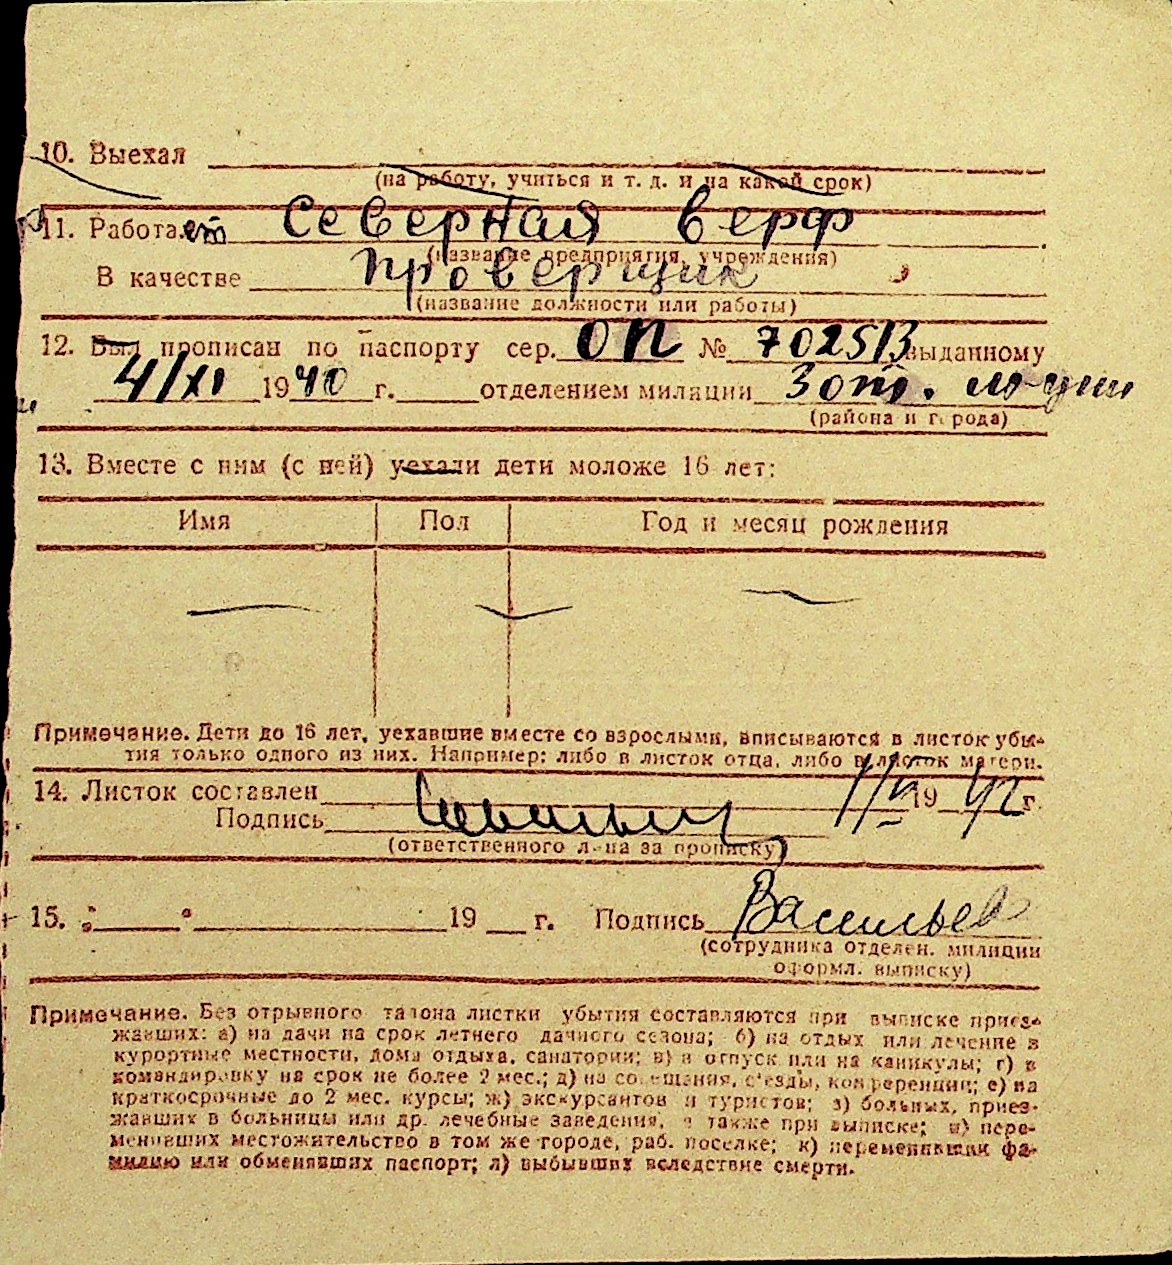 10. Выехал
(на работу, учиться и т. д. и на какой срок)
11. Работает Северная верф
(название предприятия, учреждения)
В качестве проверщик
(название должности или работы)
12. Был прописан по паспорту сер. ОП № 702513 выданному
4/XI 1940 г. отделением милиции 3 от.
(района и города)
13. Вместе с ним (с ней) уехали дети моложе 16 лет:
Имя Пол Год и месяц рождения
Примечание. Дети до 16 лет, уехавшие вместе со взрослыми, вписываются в листок убы-
тия только одного из них. Например: либо в листок отца, либо в листок матери.
14. Листок составлен 1942 г.
Подпись
(ответственного л-ца за прописку)
15. „ " 19 г. Подпись Васильев
(сотрудника отделен. милиции
оформл. выписку)
Примечание. Без отрывного талона листки убытия составляются при выписке приез-
жавших: а) на дачи на срок летнего дачного сезона; б) на отдых или лечение в
курортные местности, дома отдыха, санатории; в) в отпуск или на каникулы; г) в
командировку на срок не более 2 мес.; д) на совещания, съезды, конференции; е) на
краткосрочные до 2 мес. курсы; ж) экскурсантов и туристов; з) больных, приез-
жавших в больницы или др. лечебные заведения, а также при выписке; и) пере-
менивших местожительство в том же городе, раб. поселке; к) переменивших фа-
милию или обменявших паспорт; л) выбывших вследствие смерти.